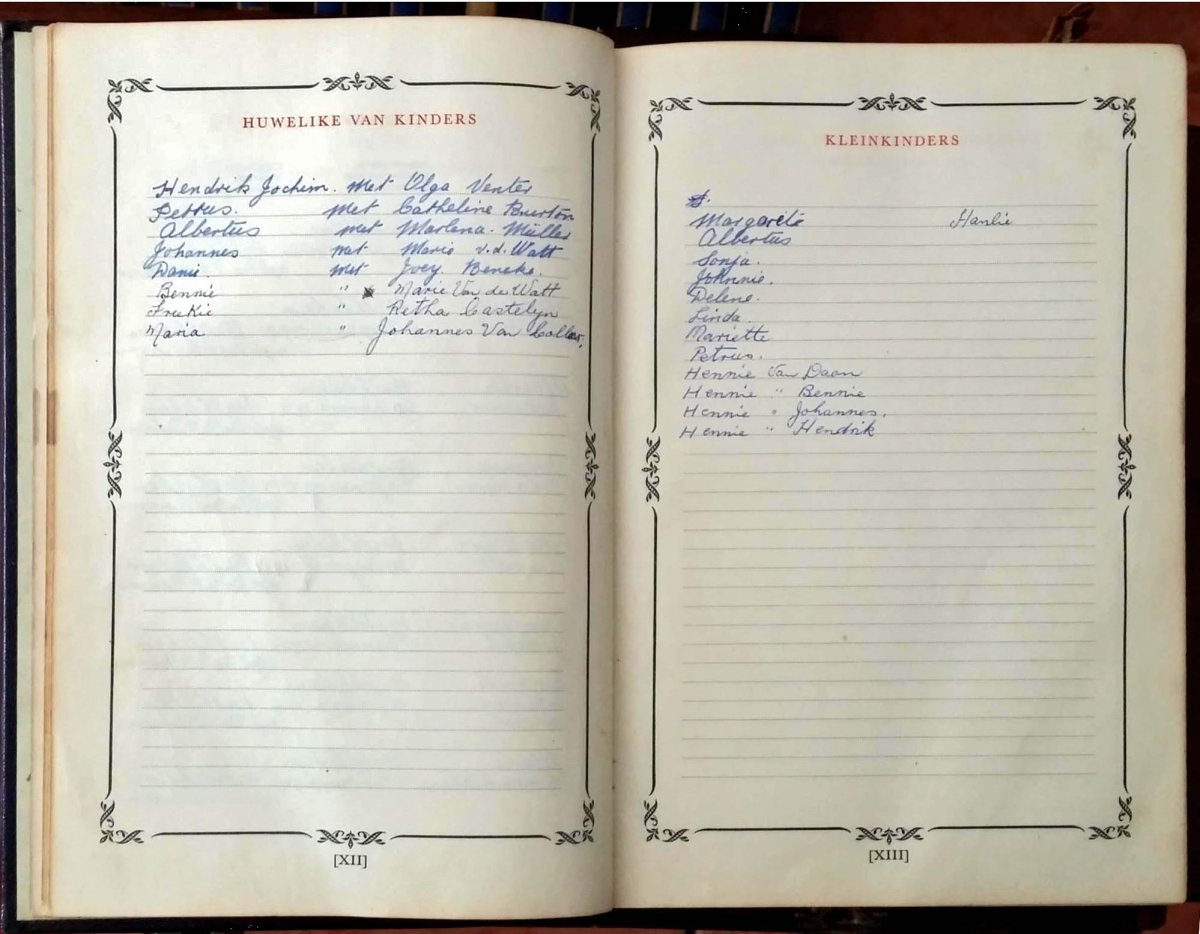 HUWELIKE VAN KINDERS
Hendrik Jochim. met Olga Venter
Petrus. met Catheline Buerton
Albertus met Martena. Müller
Johannes met Marie v.d. Watt
Danie. met Joey. Beneke.
Bennie " Marie Van de Watt
Freekie " Retha Castelyn
Maria " Johannes Van Coller.
[XII]
KLEINKINDERS
Margarète Hanlie
Albertus
Sonja.
Johnnie.
Delene.
Linda.
Mariette
Petrus.
Hennie Van Daan
Hennie " Bennie
Hennie " Johannes.
Hennie " Hendrik
[XIII]